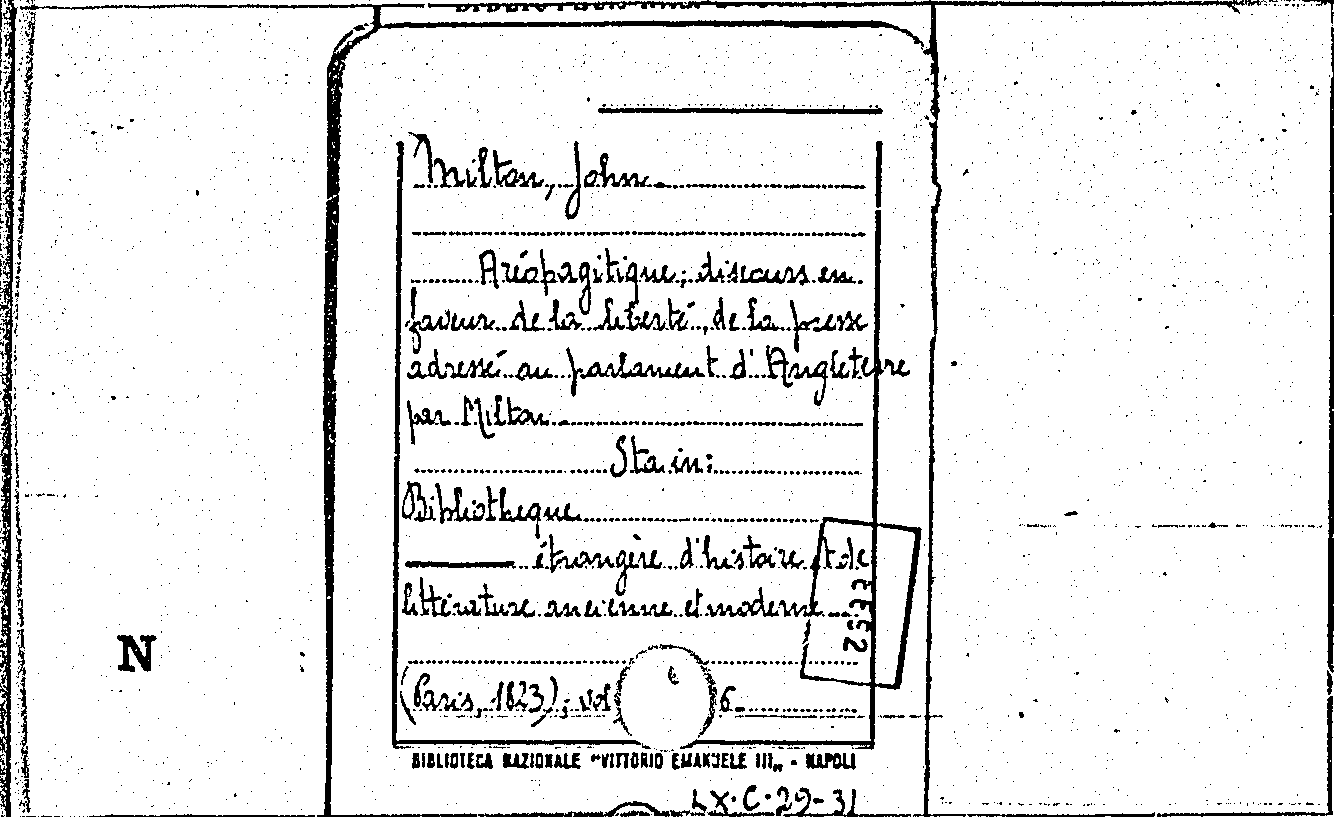 Milton, John.
Aréopagitique; discours en
faveur de la liberté, de la presse
adressé au parlament d'Angleterre
par Milton.
Sta in:
Bibliotheque
étrangère d'histoire et de
littérature ancienne et moderne
(Paris, 1823); vol 6.
N
BIBLIOTECA NAZIONALE "VITTORIO EMANUELE III„ - NAPOLI
LX.C.29-31